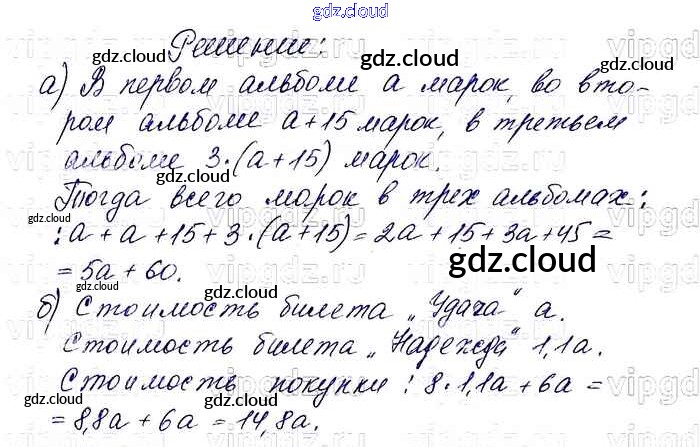 gdz.cloud
Решение:
gdz.cloud gdz.cloud
а) В первом альбоме а марок, во вто-
ром альбоме а+15 марок, в третьем
альбоме 3·(а+15) марок.
gdz.cloud
Тогда всего марок в трех альбомах:
gdz.cloud
: а + а + 15 + 3·(а+15) = 2а + 15 + 3а + 45 =
= 5а + 60. gdz.cloud gdz.cloud
б) Стоимость билета „Удача“ а.
Стоимость билета „Надежда“ 1,1а.
Стоимость покупки : 8·1,1а + 6а =
gdz.cloud gdz.cloud gdz.cloud
= 8,8а + 6а = 14,8а.